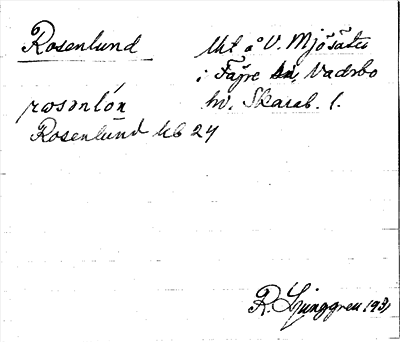 Rosenlund
Uht å V. Mjösäter
i Fägre sn, Vadsbo
hd. Skarab. l.
rosənlón
Rosenlund kb 24
R. Ljunggren 1931